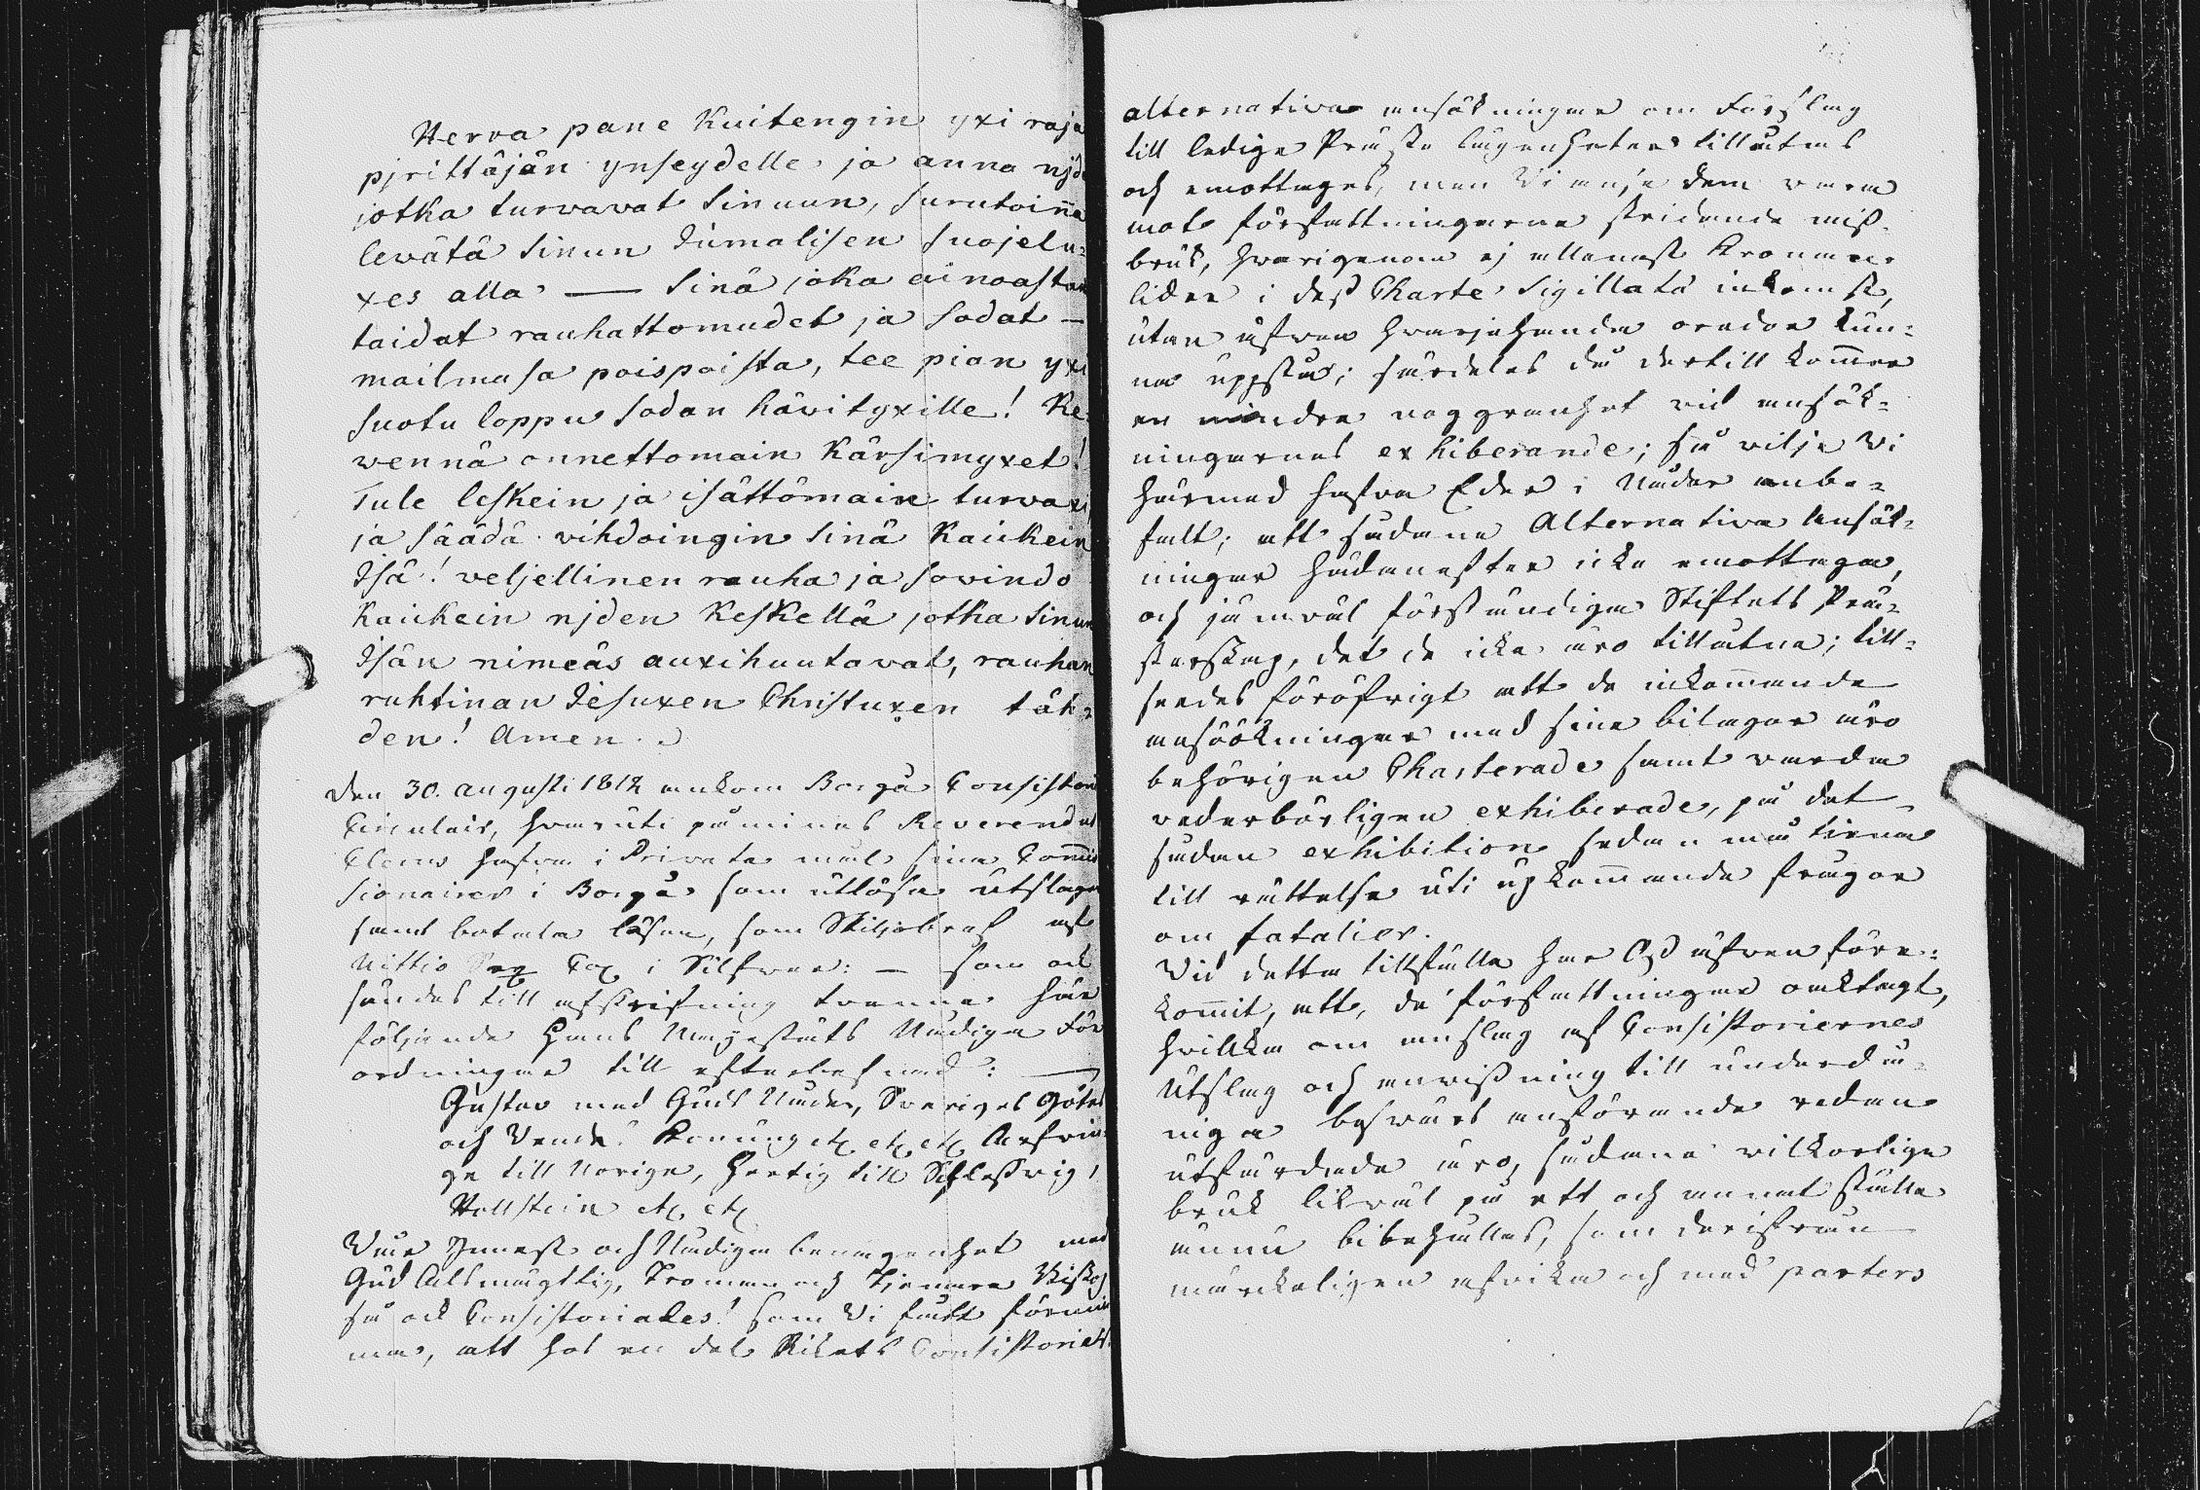 Herra pane Kuitengin yxi raja
pjrittäjän ynseydelle ja anna njd
jotka turvavat Sinuun, surutoinna
levätä Sinun Jumalisen Suojelu-
xes alla — Sinä joka ainoastan
taidat rauhattomudet ja Sodat —
mailmasa poispoista, tee pian yxi
suotu loppu Sodan hävityxille! Ke-
wennä onnettomain Kärsimyxet!
Tule leskein ja isättömain turvaxi,
ja säädä vihdoingin Sinä Kaickein
Isä! veljellinen rauha ja sovindo
Kaickein njden Keskellä jotka Sinun
Isän nimeäs auxihuutavat, rauhan
ruhtinan Jesuxen Christuxen täh-
den! Amen.
Den 30. augusti 1812 ankom Borgå Consistorii
Circulair, hvaruti påminnes Reverendus
Clerus hafva i Private mål sina Commis
sionairer i Borgå som utlösa utslagen
samt betala lösen, som Skiljobref
Nittio i Silfver: — som ock
sändes till afskrifning trenne här
följande Hans Majestäts Nådiga För
ordningar till efterlefnad: —
Gustav med Guds Nåde, Sveriges Götes
och Vendes Konung etc etc etc Arfvin-
ge till Norige, Hertig till Schlesswig,
Hollstein etc etc
Vår Ynnest och Nådiga benägenhet med
Gud Allsmägttig, Tromän och Tjenare Biskop
så ock Consistoriales! Som Vi sport förnim
ma, att hos en del Rikets Consistoriets
alternativa ansökningar om Förslag
till ledige Prästa lägenheter tillåtas
och emottages, men Vi anse dem vara
mot författningarna stridande miss-
bruk, hvarigenom ej allenast Kronan
lider i dess Charte Sigillatæ inkomst,
utan äfven hvarjehanda oredor kun-
na uppstå; särdeles då dertill kommer
en mindre noggranhet vid ansök-
ningarnes exhiberande; så vilje Vi
härmed hafva Eder i Nåder anbe-
falt; att sådane Alternativa Ansök-
ningar hädanefter icke emottaga,
och jämväl förständiga Stiftets Prä-
sterskap, det de icke äro tillåtna; till-
seendes föröfrigt att de inkommande
ansöökningar med sina bilagor äro
behörigen Charterade samt varda
vederbörligen exhiberade, på det
sådan exhibition sedan må tjena
till rättelse uti upkommande frågor
om fatalier.
Vid detta tillfälle har Oss äfven före-
kommit, att, de författningar oaktagt,
hvilka om anslag af Consistoriernes
Utslag och anvissning till underdå-
niga besvärs anförande redan
utfärdade äro, sådana vilkorlige
bruk likväl på ett och annat ställe
ännu bibehålles, som derifrån
märckeligen afvika och med parters